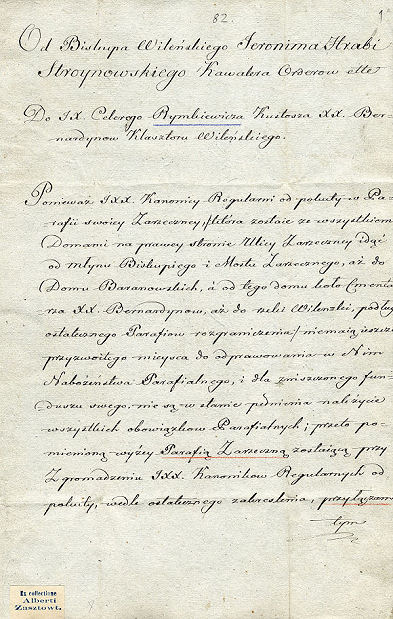 82 1
Od Biskupa Wileńskiego Jeronima Hrabi
Stroynowskiego Kawalera Orderow ette
Do JX. Celerego Rymkiewicza Kustosza XX. Ber-
nardynow Klasztoru Wileńskiego.
Ponieważ JXX. Kanonicy Regularni od pokuty w Pa-
rafii swoiey Zarzeczney, /:która zostaie ze wszystkiemi
Domami na prawey stronie Ulicy Zarzeczney idąc
od młynu Biskupiego i Mostu Zarzecznego, aż do
Domu Baranowskich, á od tego domu koło Cmenta-
rza XX. Bernardynow, aż do rzeki Wilenki, podług
ostatecznego Parafiow rozgraniczenia:/ niemaią ieszcze
przyzwoitego mieysca do odprawowania w Nim
Nabożeństwa Parafialnego, i dla zniszczonego fun-
duszu swego, nie są w stanie pełnienia należycie
wszystkich obowiązkow Parafialnych; przeto po-
mienioną wyżey Parafią Zarzeczną zostaiącą przy
Zgromadzeniu JXX. Kanonikow Regularnych od
pokuty, wedle ostatecznego zakreślenia, przyłączam
tym
Ex collectione
Alberti
Zasztowt.